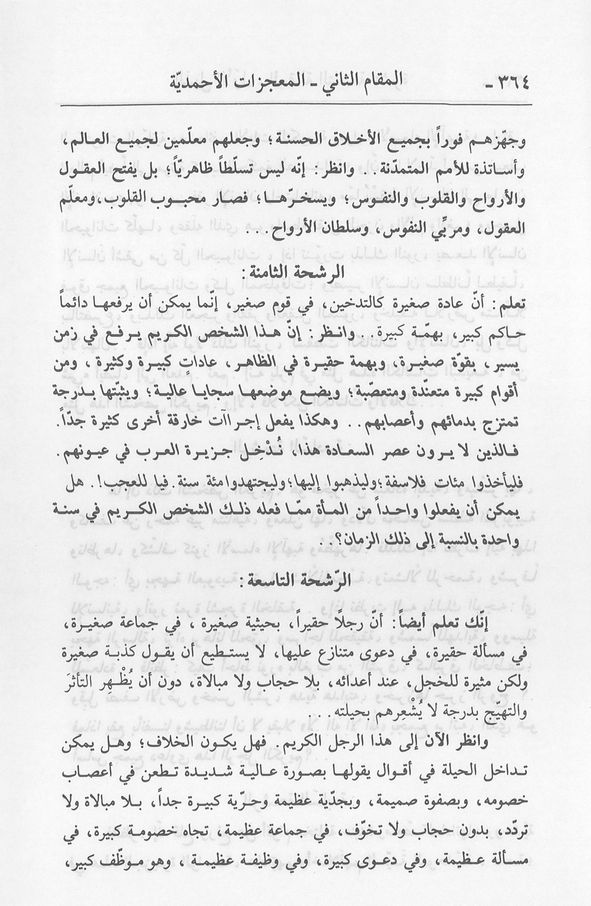 ٣٦٤ - المقام الثاني - المعجزات الأحمديّة
وجهّزهم فوراً بجميع الأخلاق الحسنة؛ وجعلهم معلّمين لجميع العالم،
وأساتذة للأمم المتمدّنة.. وانظر: إنّه ليس تسلّطاً ظاهريّاً؛ بل يفتح العقول
والأرواح والقلوب والنفوس؛ ويسخّرها؛ فصار محبوب القلوب،ومعلّم
العقول، ومربّي النفوس، وسلطان الأرواح...
الرشحة الثامنة:
تعلم: أنّ عادة صغيرة كالتدخين، في قوم صغير، إنّما يمكن أن يرفعها دائماً
حاكم كبير، بهمّة كبيرة.. وانظر: إنّ هذا الشخص الكريم يرفع في زمن
يسير، بقوّة صغيرة، وبهمة حقيرة في الظاهر، عاداتٍ كبيرة وكثيرة، ومن
أقوام كبيرة متعنّدة ومتعصّبة؛ ويضع موضعها سجايا عالية؛ ويثبّتها بدرجة
تمتزج بدمائهم وأعصابهم.. وهكذا يفعل إجراآت خارقة أخرى كثيرة جدّاً.
فالذين لا يرون عصر السعادة هذا، نُدْخِل جزيرة العرب في عيونهم.
فليأخذوا مئات فلاسفة؛وليذهبوا إليها؛وليجتهدوامئة سنة.فيا للعجب!. هل
يمكن أن يفعلوا واحداً من المأة ممّا فعله ذلك الشخص الكريم في سنة
واحدة بالنسبة إلى ذلك الزمان؟..
الرّشحة التاسعة:
إنّك تعلم أيضاً: أن رجلاً حقيراً، بحيثية صغيرة ، في جماعة صغيرة،
في مسألة حقيرة، في دعوى متنازع عليها، لا يستطيع أن يقول كذبة صغيرة
ولكن مثيرة للخجل، عند أعدائه، بلا حجاب ولا مبالاة، دون أن يُظْهِر التأثرَ
والتهيّج بدرجة لا يُشْعِرهم بحيلته...
وانظر الآن إلى هذا الرجل الكريم. فهل يكون الخلاف؛ وهل يمكن
تداخل الحيلة في أقوال يقولها بصورة عالية شديدة تطعن في أعصاب
خصومه، وبصفوة صميمة، وبجدّية عظيمة وحرّية كبيرة جداً، بلا مبالاة ولا
تردّد، بدون حجاب ولا تخوّف، في جماعة عظيمة، تجاه خصومة كبيرة، في
مسألة عظيمة، وفي دعوى كبيرة، وفي وظيفة عظيمة ، وهو موظّف كبير،